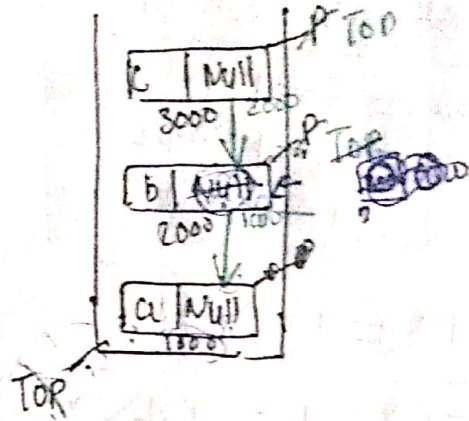 P TOP
C Null
3000 2000
P TOP
b Null
2000 1000
a Null
1000
TOP